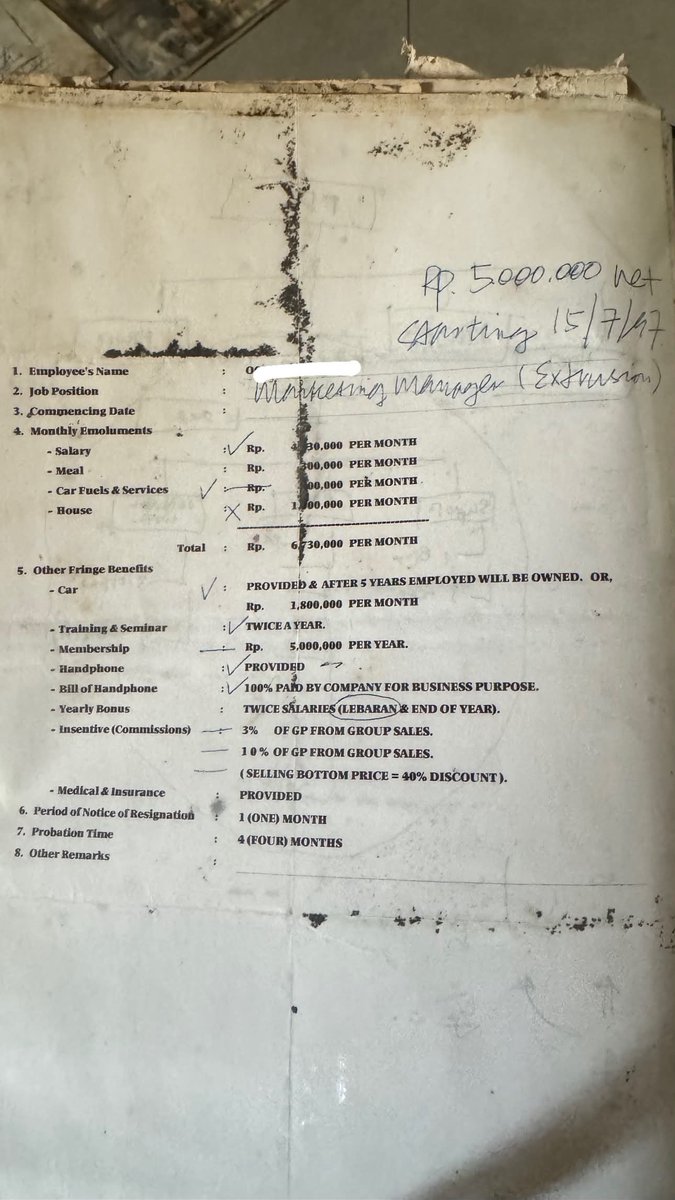 Rp. 5.000.000 net
starting 15/7/97
1. Employee's Name :
2. Job Position : Marketing Manager (Extrusion)
3. Commencing Date :
4. Monthly Emoluments
- Salary : Rp. 30,000 PER MONTH
- Meal : Rp. 00,000 PER MONTH
- Car Fuels & Services Rp. 00,000 PER MONTH
- House : Rp. 00,000 PER MONTH
Total : Rp. 6,730,000 PER MONTH
5. Other Fringe Benefits
- Car : PROVIDED & AFTER 5 YEARS EMPLOYED WILL BE OWNED. OR,
Rp. 1,800,000 PER MONTH
- Training & Seminar : TWICE A YEAR.
- Membership Rp. 5,000,000 PER YEAR.
- Handphone : PROVIDED
- Bill of Handphone : 100% PAID BY COMPANY FOR BUSINESS PURPOSE.
- Yearly Bonus : TWICE SALARIES (LEBARAN & END OF YEAR).
- Insentive (Commissions) 3% OF GP FROM GROUP SALES.
10% OF GP FROM GROUP SALES.
(SELLING BOTTOM PRICE = 40% DISCOUNT).
- Medical & Insurance : PROVIDED
6. Period of Notice of Resignation : 1 (ONE) MONTH
7. Probation Time : 4 (FOUR) MONTHS
8. Other Remarks :